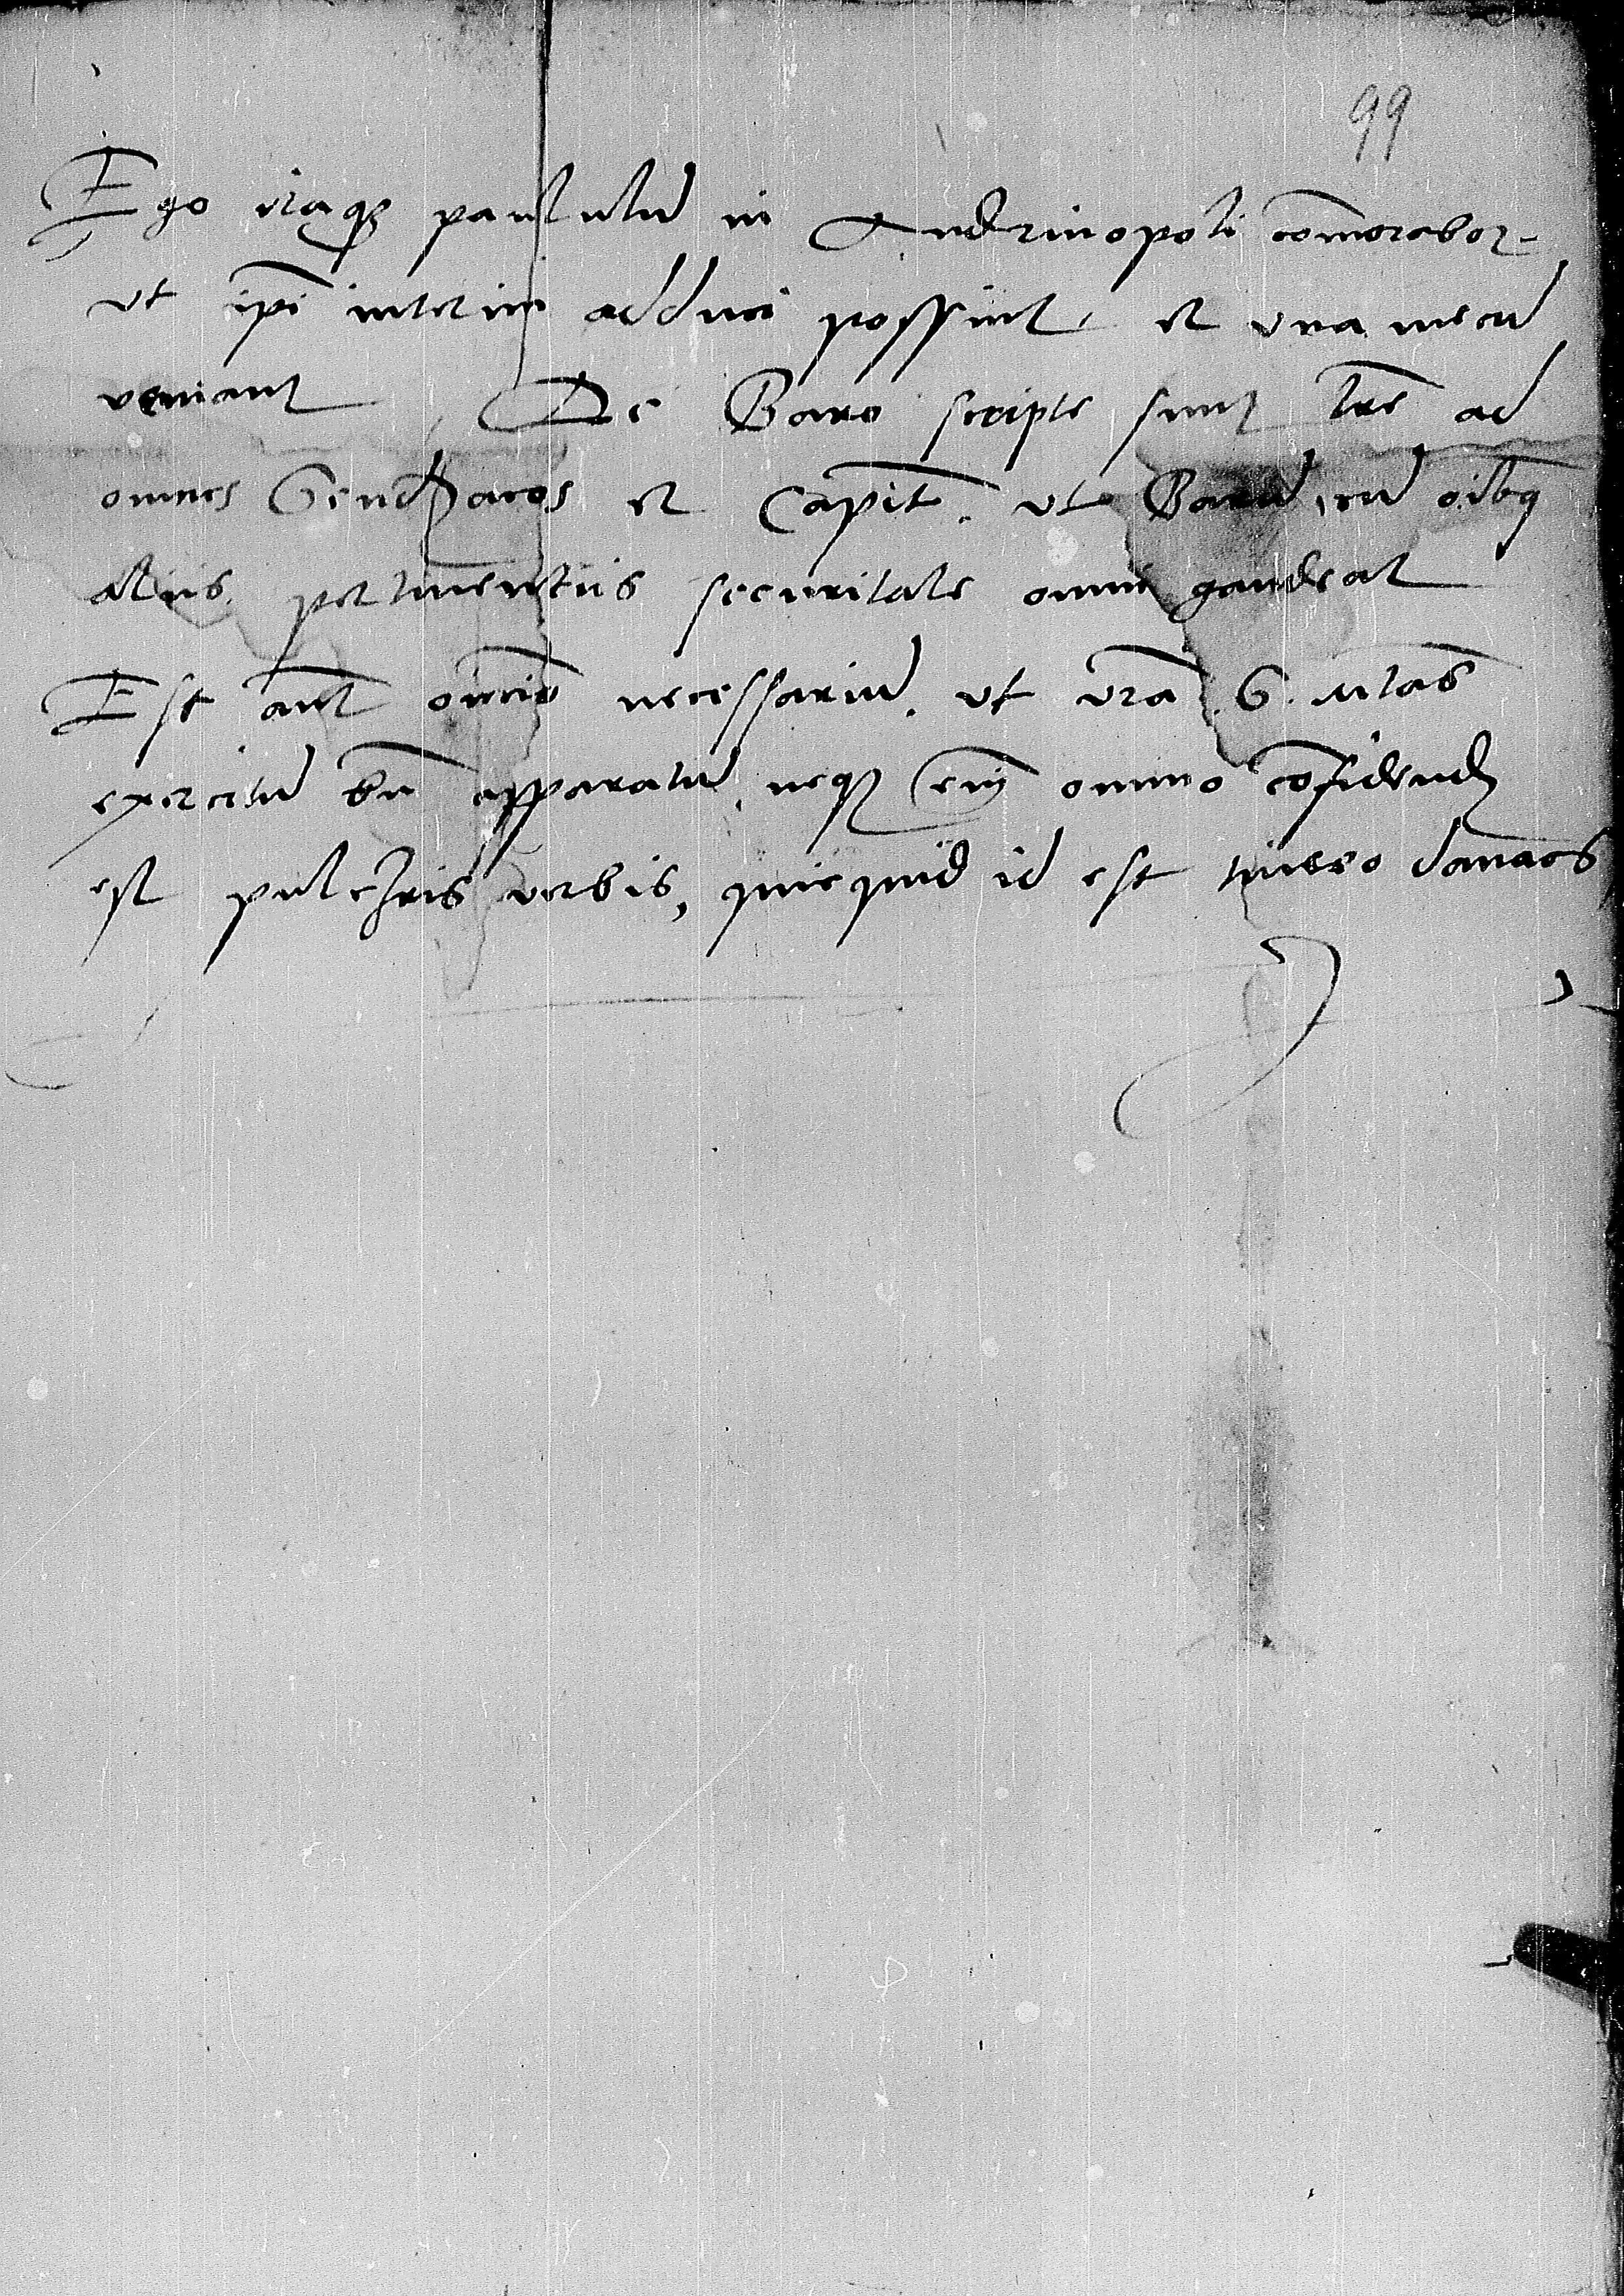 99
Ego itaq₃ paululū in Andrinopoli com̄orabor
ut ip̄i interim adduci possint, et una mecū
veniant. De Baro scripte sunt lr̄e ad
omnes Sendʒacos et Capit. ut Barū, cū oībꝫ
aliis pertinentiis securitate omni gaudeat
Est aūt om̄ino necessariū, ut vr̄a S. Mtas
exercitū bn̄ apparatū, neq₃ em̄ omnino cōfidendū
est pulchris verbis, quicquid id est timeo danaos